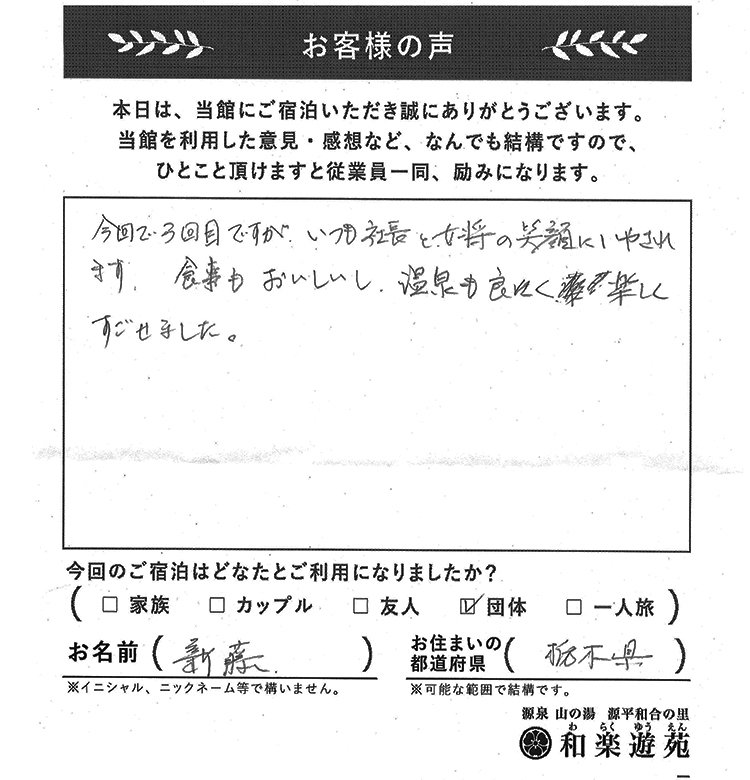 お客様の声
本日は、当館にご宿泊いただき誠にありがとうございます。
当館を利用した意見・感想など、なんでも結構ですので、
ひとこと頂けますと従業員一同、励みになります。
今回で3回目ですが、いつも社長と女将の笑顔にいやされ
ます。食事もおいしいし、温泉も良く 楽しく
すごせました。
今回のご宿泊はどなたとご利用になりましたか?
( □ 家族 □ カップル □ 友人 ☑ 団体 □ 一人旅 )
お名前 ( 新藤 )
※イニシャル、ニックネーム等で構いません。
お住まいの都道府県 ( 栃木県 )
※可能な範囲で結構です。
源泉 山の湯 源平和合の里
わ らく ゆう えん
和楽遊苑